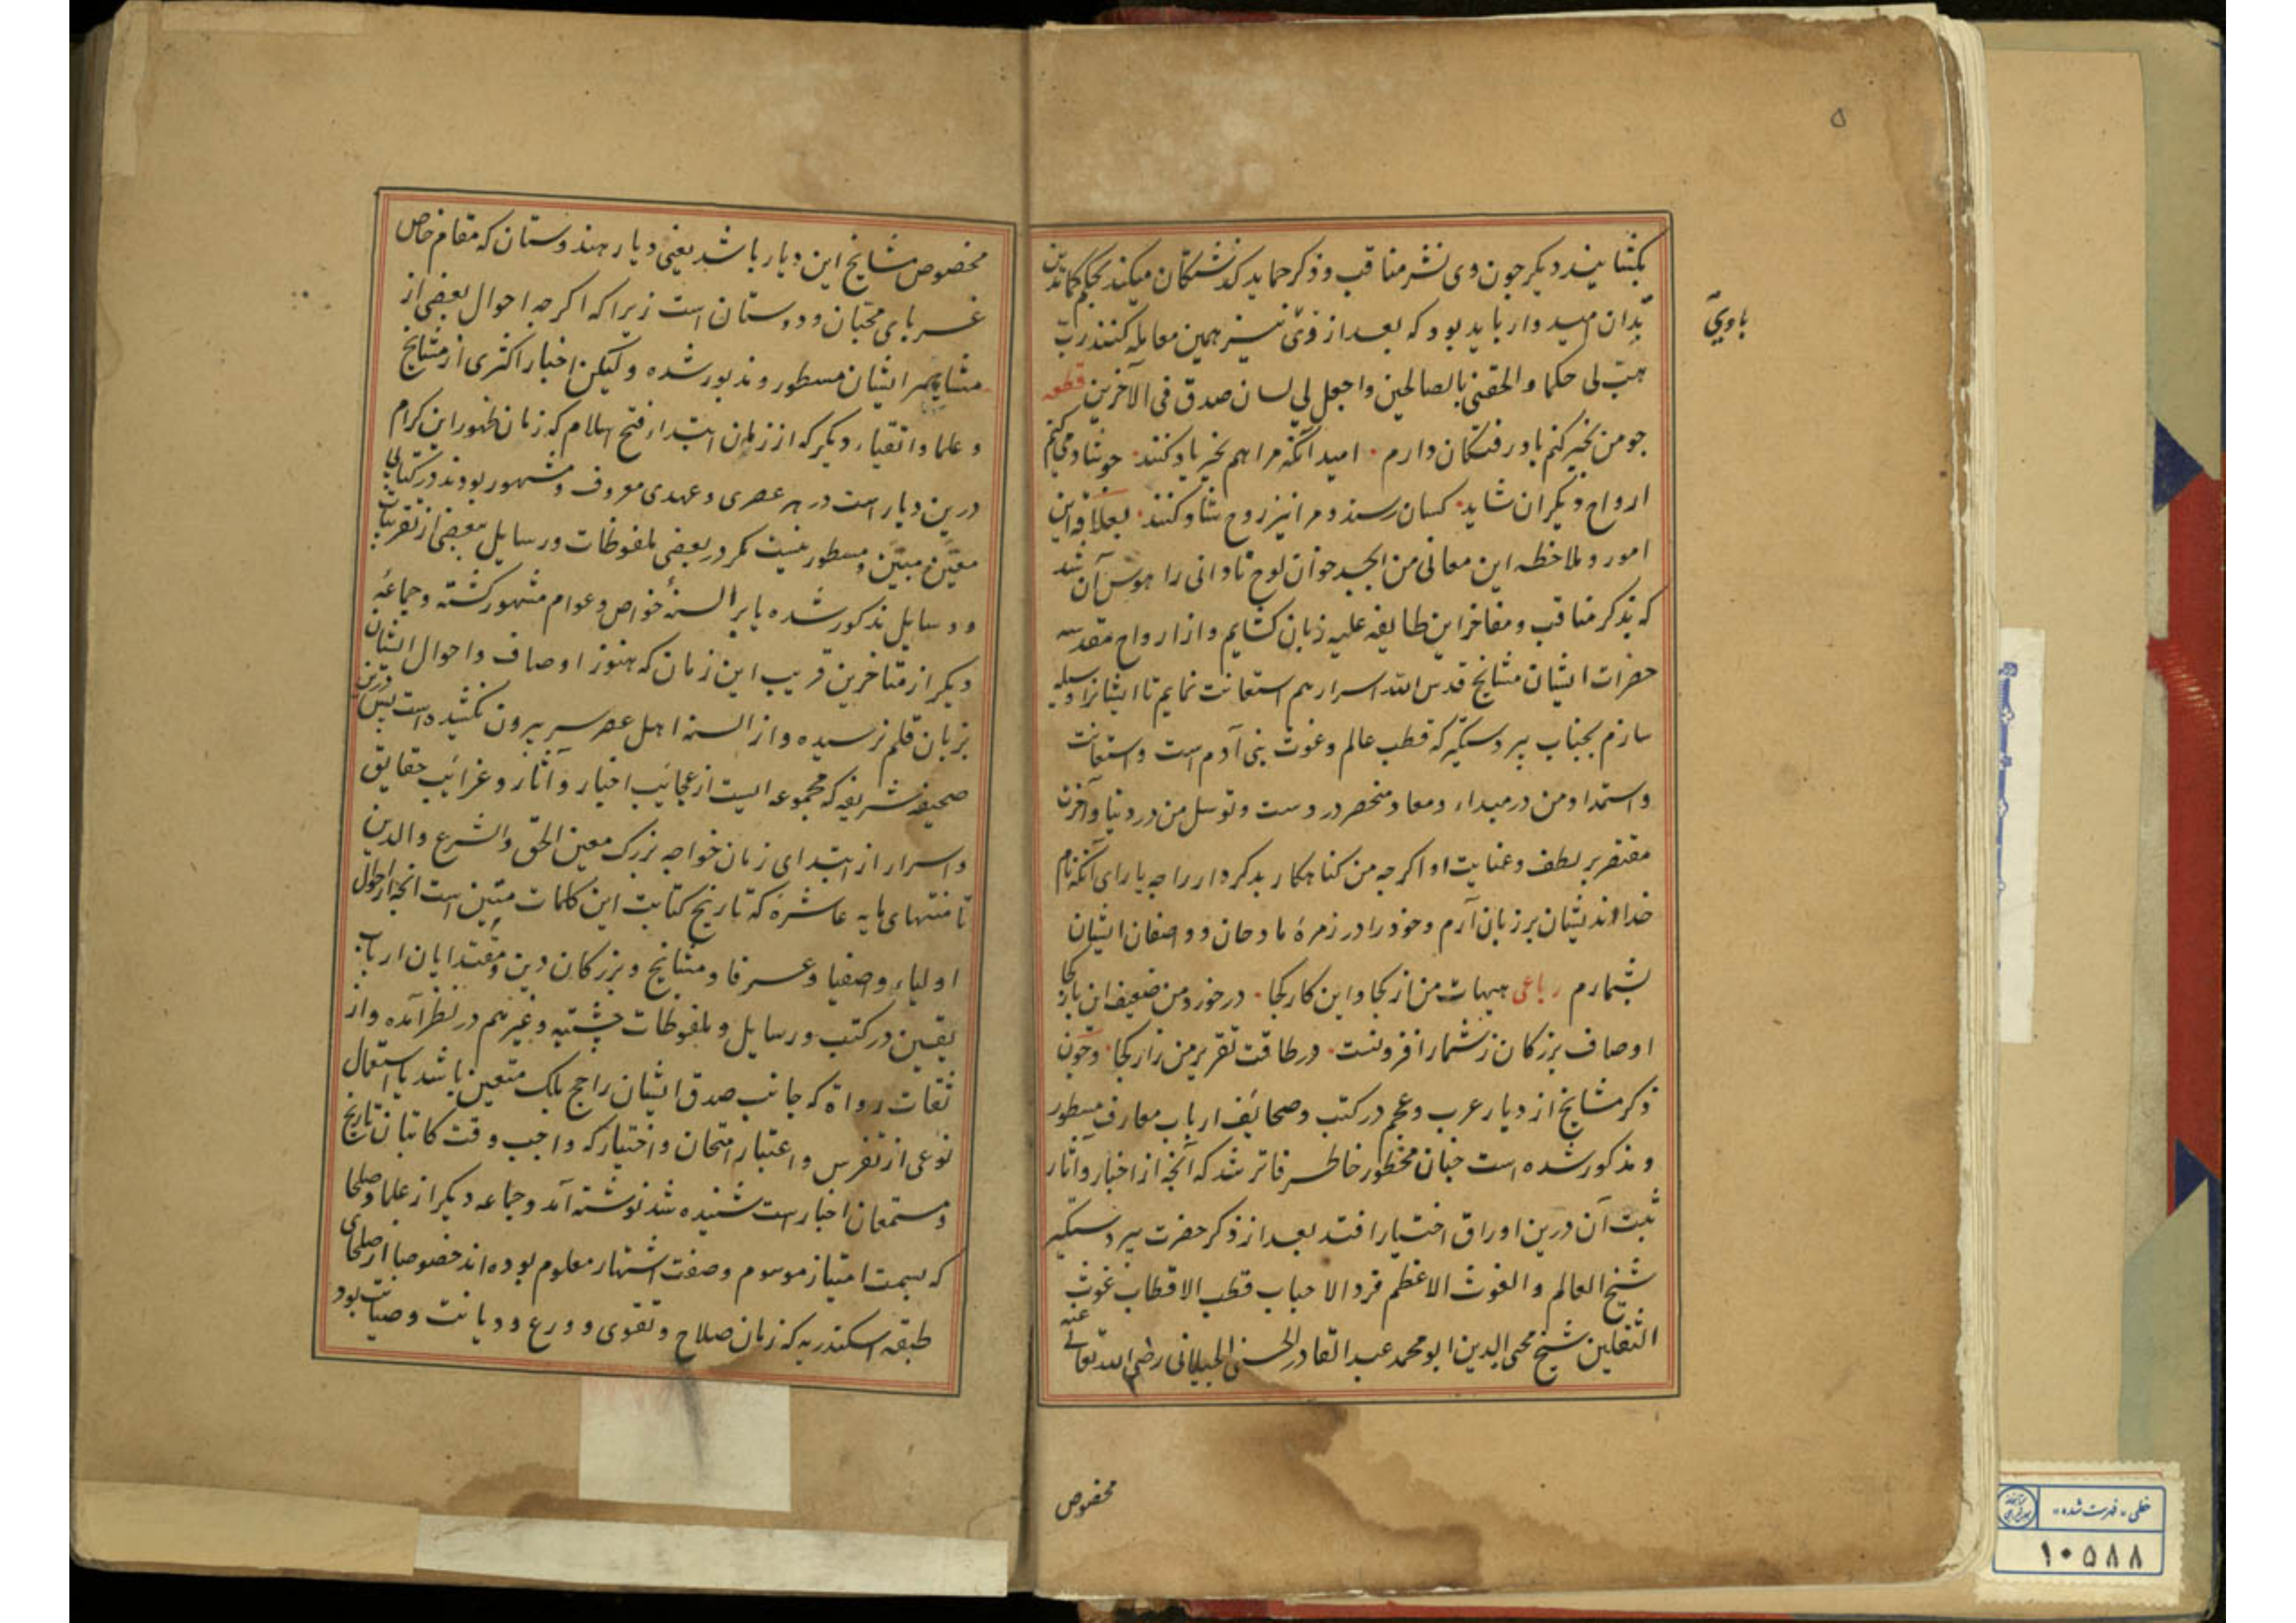 ۵
بکشایند دیکر چون وی نشر مناقب و ذکر محامد کذشتکان میکند بحکم کما تدین
تدان امیدوار باید بود که بعد از وی نیز همین معامله کنند رب
باوی
هب لی حکما والحقنی بالصالحین واجعل لی لسان صدق فی الآخرین قطعه
چو من بخیر کنم یاد رفتکان دارم امید آنکه مرا هم بخیر یاد کنند چو شاد می کنم
ارواح دیکران شاید کسان رسند و مرا نیز روح شاد کنند بعلاقه این
امور و ملاحظه این معانی من ابجد خوان لوح نادانی را هوس آن شد
که بذکر مناقب و مفاخر این طایفه علیه زبان کشایم و از ارواح مقدسه
حضرات ایشان مشایخ قدس الله اسرارهم استعانت نمایم تا ایشانرا وسیله
سازم بجناب پیر دستکیر که قطب عالم و غوث بنی آدم است و استعانت
و استمداد من در مبداء و معاد منحصر دروست و توسل من در دنیا و آخرت
مقتصر بر لطف و عنایت او اکرچه من کناهکار بدکردار را چه یارای آنکه نام
خداوند یشان بر زبان آرم و خود را در زمرهٔ مادحان و واصفان ایشان
بشمارم رباعی هیهات من از کجا و این کار کجا در خورد من ضعیف این بار کجا
اوصاف بزرکان ز شمار افزونست در طاقت تقریر من زار کجا و چون
ذکر مشایخ از دیار عرب و عجم در کتب و صحائف ارباب معارف مسطور
و مذکور شده است چنان مخطور خاطر فاتر شد که آنچه از اخبار و آثار
ثبت آن درین اوراق اختیار افتد بعد از ذکر حضرت پیر دستکیر
شیخ العالم و الغوث الاعظم فرد الاحباب قطب الاقطاب غوث
الثقلین شیخ محیی الدین ابو محمد عبد القادر الحسنی الجیلانی رضی الله تعالی عنه
مخصوص
مخصوص مشایخ این دیار باشد یعنی دیار هندوستان که مقام خاص
غربای محبان و دوستان است زیرا که اکرچه احوال بعضی از
مشاهیر ایشان مسطور و مذبور شده ولیکن اخبار اکثری از مشایخ
و علما و اتقیاء دیکر که از زمان ابتداء فتح اسلام که زمان ظهور این کرام
درین دیار است در هر عصری و عهدی معروف و مشهور بودند در کتابی
معین مبین و مسطور نیست مکر در بعضی ملفوظات و رسایل ببعضی از تقریبات
و وسایل مذکور شده یا بر السنهٔ خواص و عوام مشهور کشته و جماعهٔ
دیکر از متاخرین قریب این زمان که هنوز اوصاف و احوال ایشان
بزبان قلم نرسیده و از السنه اهل عصر سر بیرون نکشیده است پس درین
صحیفه شریفه که مجموعه ایست از عجایب اخبار و آثار و غرائب حقایق
و اسرار از ابتدای زمان خواجه بزرک معین الحق والشرع والدین
تا منتهای مایه عاشره که تاریخ کتابت این کلمات متین است آنچه از احوال
اولیاء و اصفیا و عرفا و مشایخ و بزرکان دین و مقتدایان ارباب
یقین در کتب و رسایل و ملفوظات چشتیه و غیرهم در نظر آمده و از
ثقات رواة که جانب صدق ایشان راجح بلک متعین باشد با استعمال
نوعی از تفرس و اعتبار امتحان و اختیار که واجب وقت کاتبان تاریخ
و مستمعان اخبار است شنیده شد نوشته آمد و جماعه دیکر از علما و صلحا
که بسمت امتیاز موسوم و صفت اشتهار معلوم بوده اند خصوصا از صلحای
طبقه اسکندریه که زمان صلاح و تقوی و ورع و دیانت و صیانت بود
خطی - فهرست شده -
۱۰۵۸۸